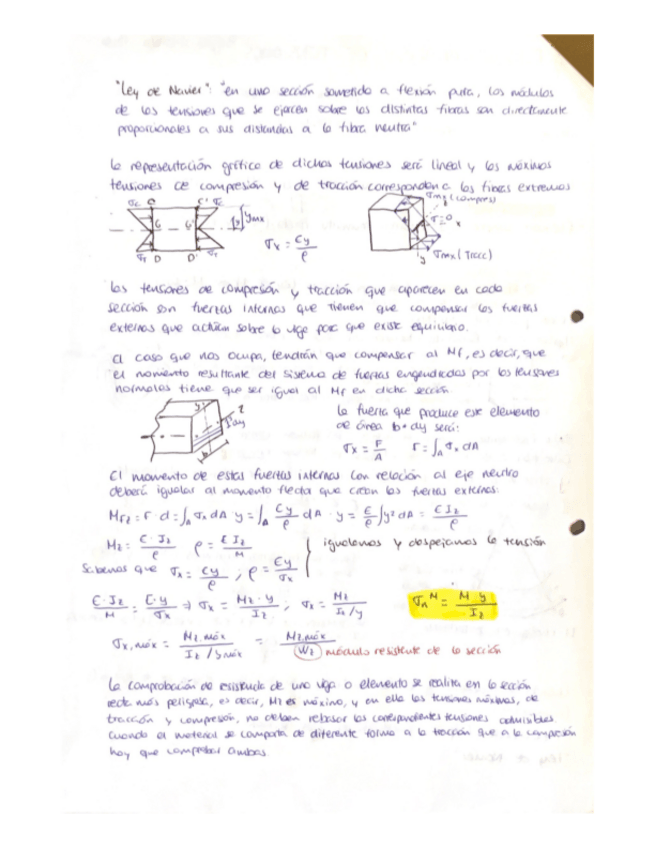 "Ley de Navier": "en una sección sometida a flexión pura, los módulos
de las tensiones que se ejercen sobre las distintas fibras son directamente
proporcionales a sus distancias a la fibra neutra"
la representación gráfica de dichas tensiones será lineal y las máximas
tensiones de compresión y de tracción corresponden a las fibras extremas
σc C C' σc
G G' y ymax
σt D D' σt
σx = Ey/ρ
σmx (compres)
σ=0 x
y σmx (Tracc)
las tensiones de compresión y tracción que aparecen en cada
sección son fuerzas internas que tienen que compensar las fuerzas
externas que actúan sobre la viga para que exista equilibrio.
El caso que nos ocupa, tendrán que compensar al Mf, es decir, que
el momento resultante del sistema de fuerzas engendradas por las tensiones
normales tiene que ser igual al Mf en dicha sección.
y z dy b
la fuerza que produce este elemento
de área b·dy será:
σx = F/A F = ∫A σx dA
El momento de estas fuerzas internas con relación al eje neutro
deberá igualar al momento flecta que crean las fuerzas externas:
Mfz = F · d = ∫A σx dA y = ∫A Ey/ρ dA · y = E/ρ ∫y² dA = E Iz/ρ
Mz = E · Iz/ρ ρ = E Iz/M igualamos y despejamos la tensión
Sabemos que σx = Ey/ρ ; ρ = Ey/σx
E · Iz/M = E · y/σx ⇒ σx = Mz · y/Iz ; σx = Mz/Iz/y σn^M = M · y/Iz
σx, máx = Mz, máx/Iz / ymáx = Mz, máx/Wz módulo resistente de la sección
la comprobación de resistencia de una viga o elemento se realiza en la sección
recta más peligrosa, es decir, Mz es máximo, y en ella las tensiones máximas, de
tracción y compresión, no deben rebasar las correspondientes tensiones admisibles
Cuando el material se comporta de diferente forma a la tracción que a la compresión
hay que comprobar ambas.